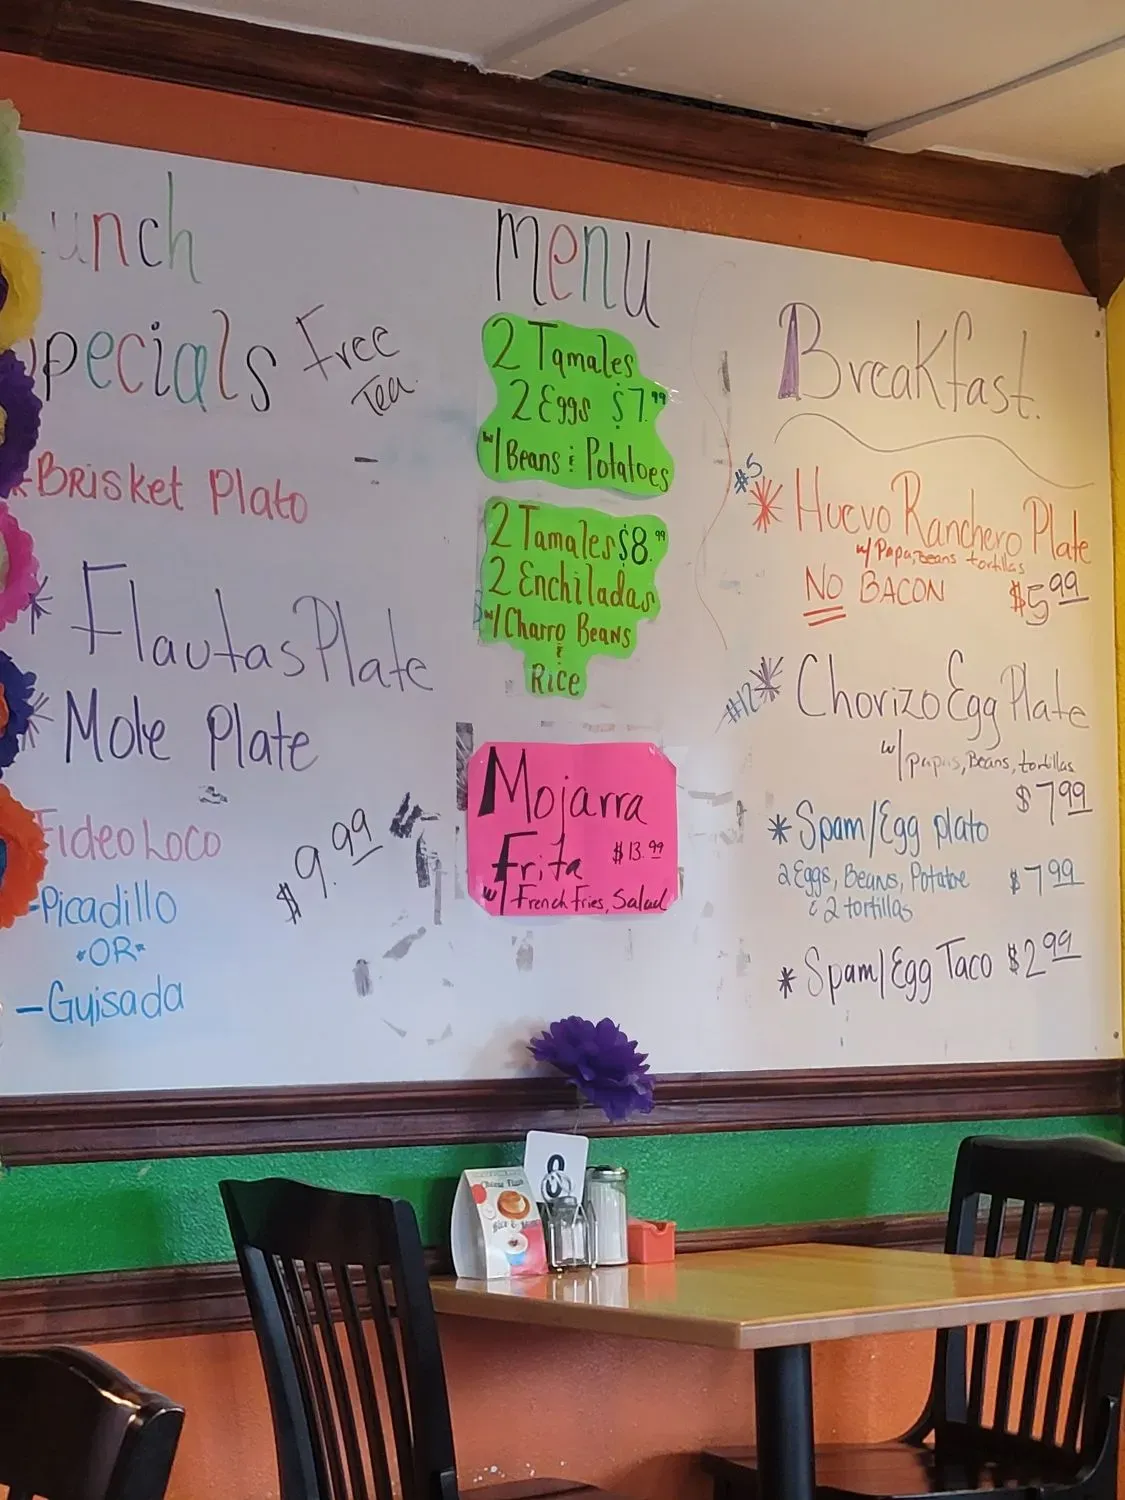 unch
Specials Free
Tea
Brisket Plato
Flautas Plate
Mole Plate
Fideo Loco
-Picadillo
*OR*
-Guisada
$9.99
Menu
2 Tamales
2 Eggs $7.99
w/ Beans & Potatoes
2 Tamales $8.99
2 Enchiladas
w/ Charro Beans
&
Rice
Mojarra
Frita $13.99
w/ French Fries, Salad
Breakfast.
#5 * Huevo Ranchero Plate
w/ Papa, beans tortillas
NO BACON $5.99
#12 * Chorizo Egg Plate
w/ papas, Beans, tortillas
$7.99
* Spam/Egg plato
2 Eggs, Beans, Potatoe $7.99
& 2 tortillas
* Spam/Egg Taco $2.99
8